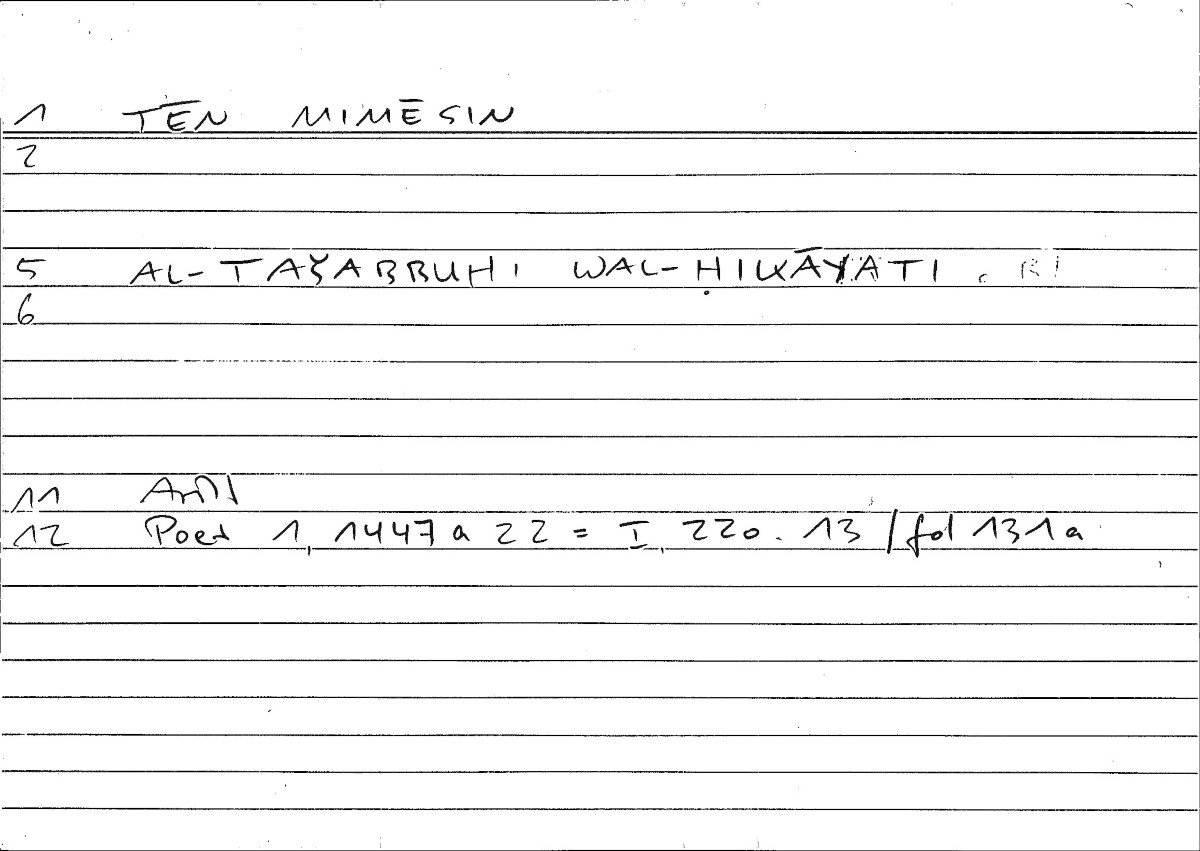 1 TĒN MIMĒSIN
2
5 AL-TAŠABBUHI WAL-ḤIKĀYATI
6
11
12 Poet 1, 1447 a 22 = I, 220. 13 / fol 131a